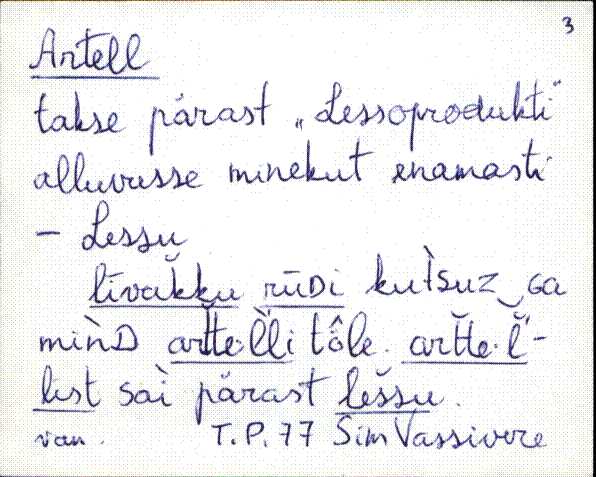 3
Artell
takse pärast „Lessoprodukti"
alluvusse minekut enamasti
– Lessu
līvak̆ku rūDi kut̀suz‿ga
minD art̆te·l̀l̀i tȫle. art̆te·l̆'-
list sai pärast leššu.
van. T.P. 77 Sim Vassivere